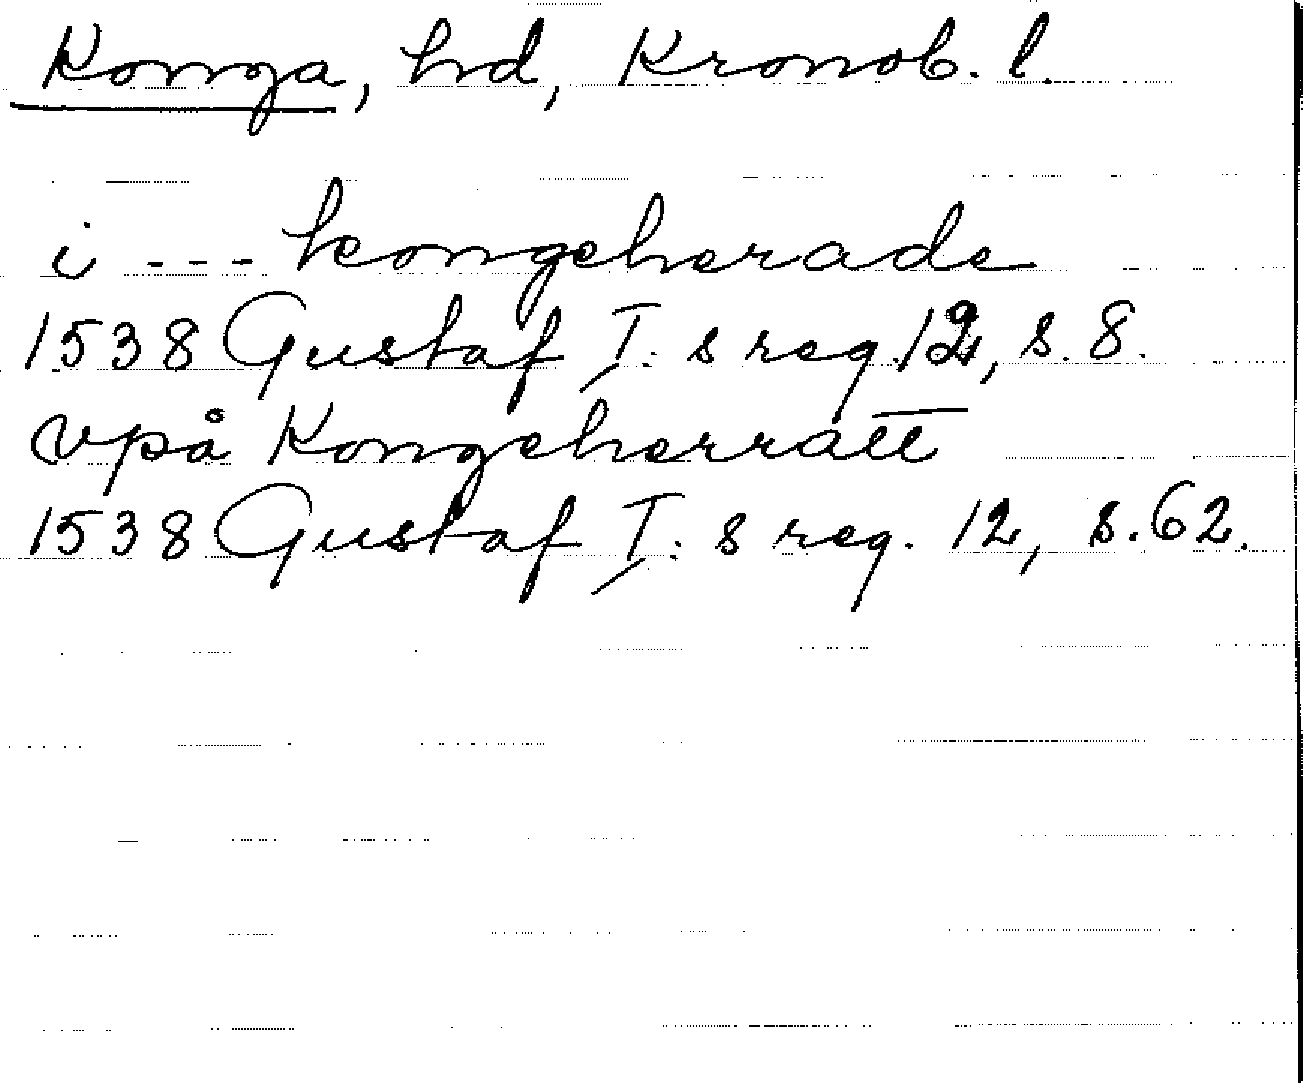 Konga, hd, Kronob. l.
i --- kongeherade
1538 Gustaf I:s reg. 12, s. 8.
vpå Kongeherratt
1538 Gustaf I:s reg. 12, s. 62.